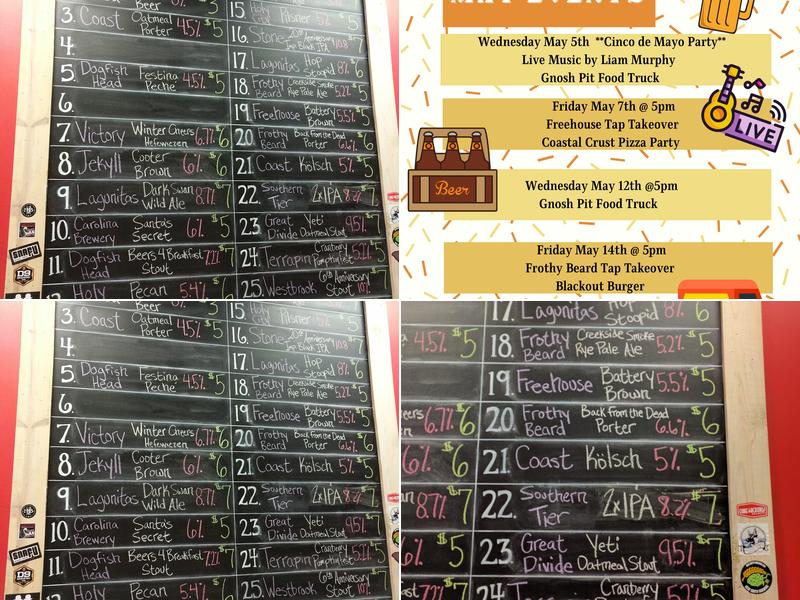 Beer
3. Coast Oatmeal Porter 4.5% $5
4.
5. Dogfish Head Festina Peche 4.5% $5
6.
7. Victory Winter Cheers Hefeweizen 6.7% $6
8. Jekyll Cooter Brown 6% $6
9. Lagunitas Dark Swan Wild Ale 8.7% $7
10. Carolina Brewery Santa's Secret 6% $5
11. Dogfish Head Beers 4 Breakfast Stout $7
12. Holy Pecan 5.4%
15. Holy City Pilsner 5% $5
16. Stone 20th Anniversary Black IPA $8
17. Lagunitas Hop Stoopid 8% $6
18. Frothy Beard Creekside Smoke Rye Pale Ale 5.2% $5
19. Freehouse Battery Brown 5.5% $5
20. Frothy Beard Back from the Dead Porter 6.6% $6
21. Coast Kölsch 5% $5
22. Southern Tier 2xIPA 8.2% $7
23. Great Divide Yeti Oatmeal Stout 9.5% $7
24. Terrapin Cranberry $5
25. Westbrook 6th Anniversary Stout 10% $7
SNAFU
MAY EVENTS
Wednesday May 5th **Cinco de Mayo Party**
Live Music by Liam Murphy
Gnosh Pit Food Truck
Friday May 7th @ 5pm
Freehouse Tap Takeover
Coastal Crust Pizza Party
LIVE
Beer
Wednesday May 12th @5pm
Gnosh Pit Food Truck
Friday May 14th @ 5pm
Frothy Beard Tap Takeover
Blackout Burger
Beer
3. Coast Oatmeal Porter 4.5% $5
4.
5. Dogfish Head Festina Peche 4.5% $5
6.
7. Victory Winter Cheers Hefeweizen 6.7% $6
8. Jekyll Cooter Brown 6% $6
9. Lagunitas Dark Swan Wild Ale 8.7% $7
10. Carolina Brewery Santa's Secret 6% $5
11. Dogfish Head Beers 4 Breakfast Stout $7
12. Holy Pecan 5.4%
15. Holy City Pilsner 5% $5
16. Stone 20th Anniversary Black IPA $8
17. Lagunitas Hop Stoopid 8% $6
18. Frothy Beard Creekside Smoke Rye Pale Ale 5.2% $5
19. Freehouse Battery Brown 5.5% $5
20. Frothy Beard Back from the Dead Porter 6.6% $6
21. Coast Kölsch 5% $5
22. Southern Tier 2xIPA 8.2% $7
23. Great Divide Yeti Oatmeal Stout 9.5% $7
24. Terrapin Cranberry $5
25. Westbrook 6th Anniversary Stout 10% $7
SNAFU
4.5% $5
6.7% $6
6% $6
8.7% $7
$5
$7
17. Lagunitas Hop Stoopid 8% $6
18. Frothy Beard Creekside Smoke Rye Pale Ale 5.2% $5
19. Freehouse Battery Brown 5.5% $5
20. Frothy Beard Back from the Dead Porter 6.6% $6
21. Coast Kölsch 5% $5
22. Southern Tier 2xIPA 8.2% $7
23. Great Divide Yeti Oatmeal Stout 9.5% $7
24. Cranberry $5